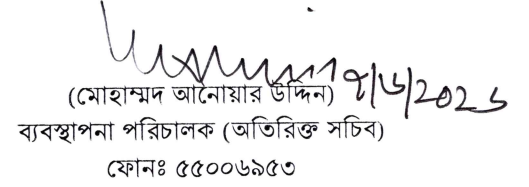 (মোহাম্মদ আনোয়ার উদ্দিন)
ব্যবস্থাপনা পরিচালক (অতিরিক্ত সচিব)
ফোনঃ ৫৫০০৬৯৫৩